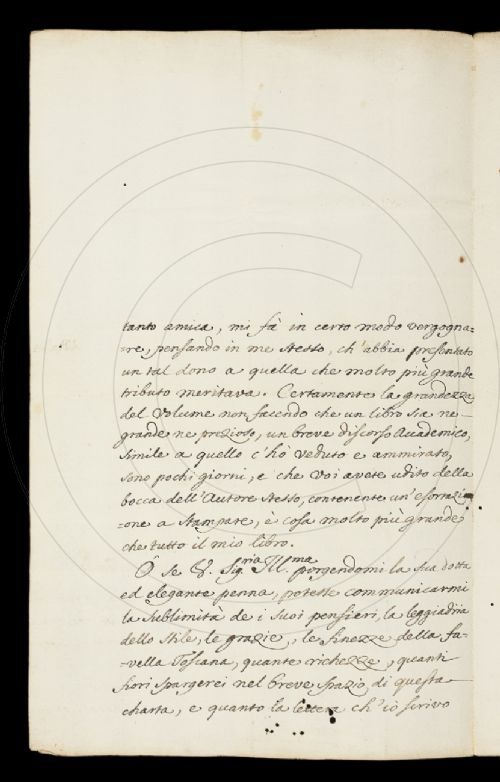 tanto amica, mi fà in certo modo vergogna=
=re, pensando in me stesso, ch'abbia presentato
un tal dono a quella che molto più grande
tributo meritava. Certamente la grandezza
del Volume non facendo che un libro sia ne
grande ne prezioso, un breve discorso Academico,
simile a quello c'hò veduto e ammirato,
sono pochi giorni, e che voi avete udito della
bocca dell'Autore stesso, contenente un'esortazi=
=one a stampare, è cosa molto più grande
che tutto il mio libro.
O se V. Sig.ria Ill.ma porgendomi la sua dotta
ed elegante penna, potesse communicarmi
la sublimità de i suoi pensieri, la leggiadria
dello stile, le grazie, le finezze della fa-
-vella Toscana, quante richezze, quanti
fiori spargerei nel breve spazio di questa
charta, e quanto la lettera ch'iò scrivo